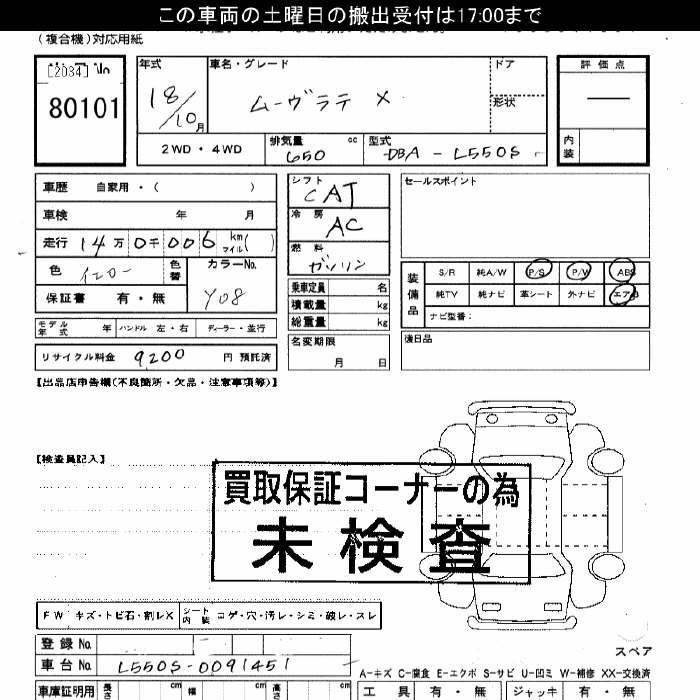 この車両の土曜日の搬出受付は17:00まで
(複合機)対応用紙
[2034] No
80101
年式
18/10月
車名・グレード
ムーヴラテ X
ドア
形状
評価点
内装
2WD・4WD
排気量 650 cc
型式 DBA-L550S
車歴 自家用・( )
車検 年 月
走行 14万0千006 km マイル( )
色 イエロー 色替
カラーNo. Y08
保証書 有・無
モデル年式 年 ハンドル 左・右 ディーラー・並行
リサイクル料金 9200 円 預託済
シフト CAT
冷房 AC
燃料 ガソリン
乗車定員 名
積載量 kg
総重量 kg
名変期限 月 日
セールスポイント
装備品
S/R 純A/W P/S P/W ABS
純TV 純ナビ 革シート 外ナビ エアB
ナビ型番:
後日品
【出品店申告欄(不良箇所・欠品・注意事項等)】
【検査員記入】
買取保証コーナーの為
未検査
FW キズ・トビ石・割レX シート内装 コゲ・穴・汚レ・シミ・破レ・スレ
登録No.
車台No. L550S-0091451
車庫証明用 長さ cm 幅 cm 高さ cm
スペア
A-キズ C-腐食 E-エクボ S-サビ U-凹ミ W-補修 XX-交換済
工具 有・無 ジャッキ 有・無